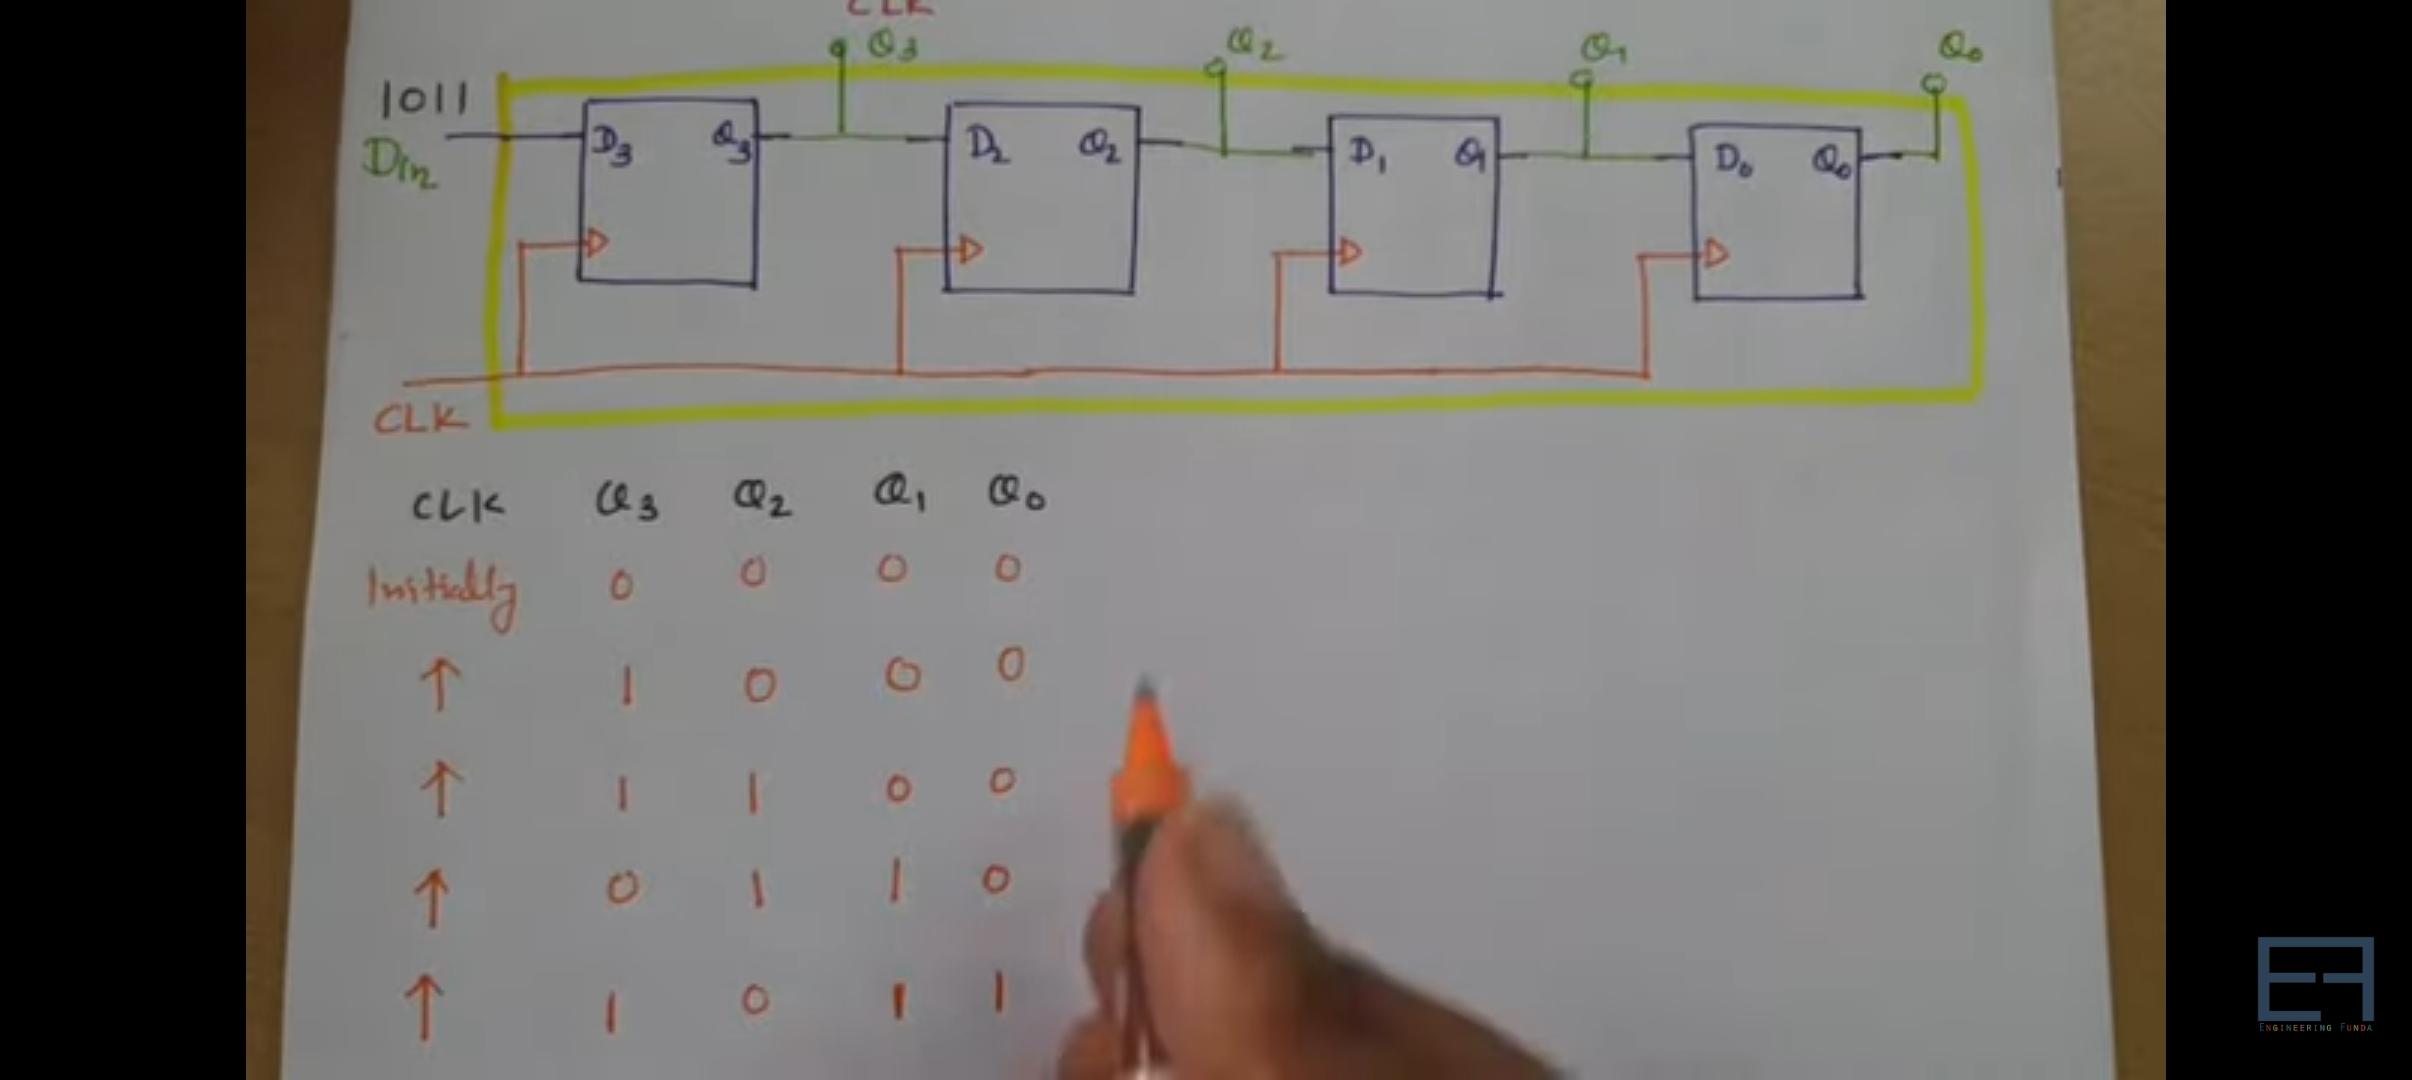 CLK
Q3 Q2 Q1 Q0
1011
Din
D3 Q3 D2 Q2 D1 Q1 D0 Q0
CLK
CLK Q3 Q2 Q1 Q0
Initially 0 0 0 0
↑ 1 0 0 0
↑ 1 1 0 0
↑ 0 1 1 0
↑ 1 0 1 1
EF
ENGINEERING FUNDA